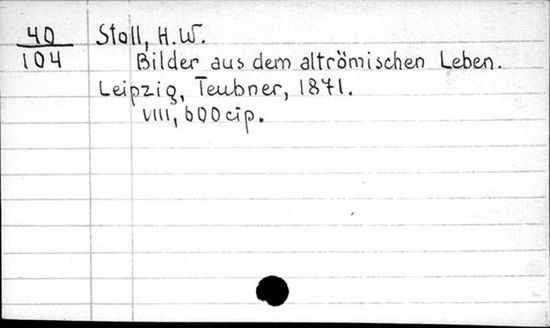 40
104
Stoll, H.W.
Bilder aus dem altrömischen Leben.
Leipzig, Teubner, 1871.
VIII, 600 cip.